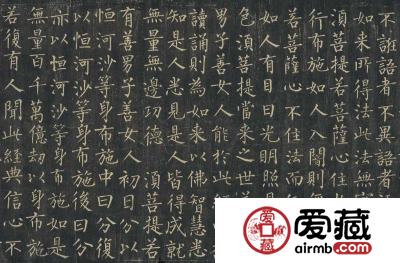 不誑語者不異語者
如來所得法此法無實
須菩提若菩薩心住
行布施如人入闇則無
若菩薩心不住法而
如人有目日光明照
色須菩提當來之世
男子善女人能於此
讀誦則為如來以佛智慧悉
知是人悉見是人皆得成就
無量無邊功德 須菩提若
有善男子善女人初日分以
恒河沙等身布施中日分復
以恒河沙等身布施後日分
亦以恒河沙等身布施如是
無量百千萬億劫以身布施
若復有人聞此經典信心不
爱藏
airmb.com